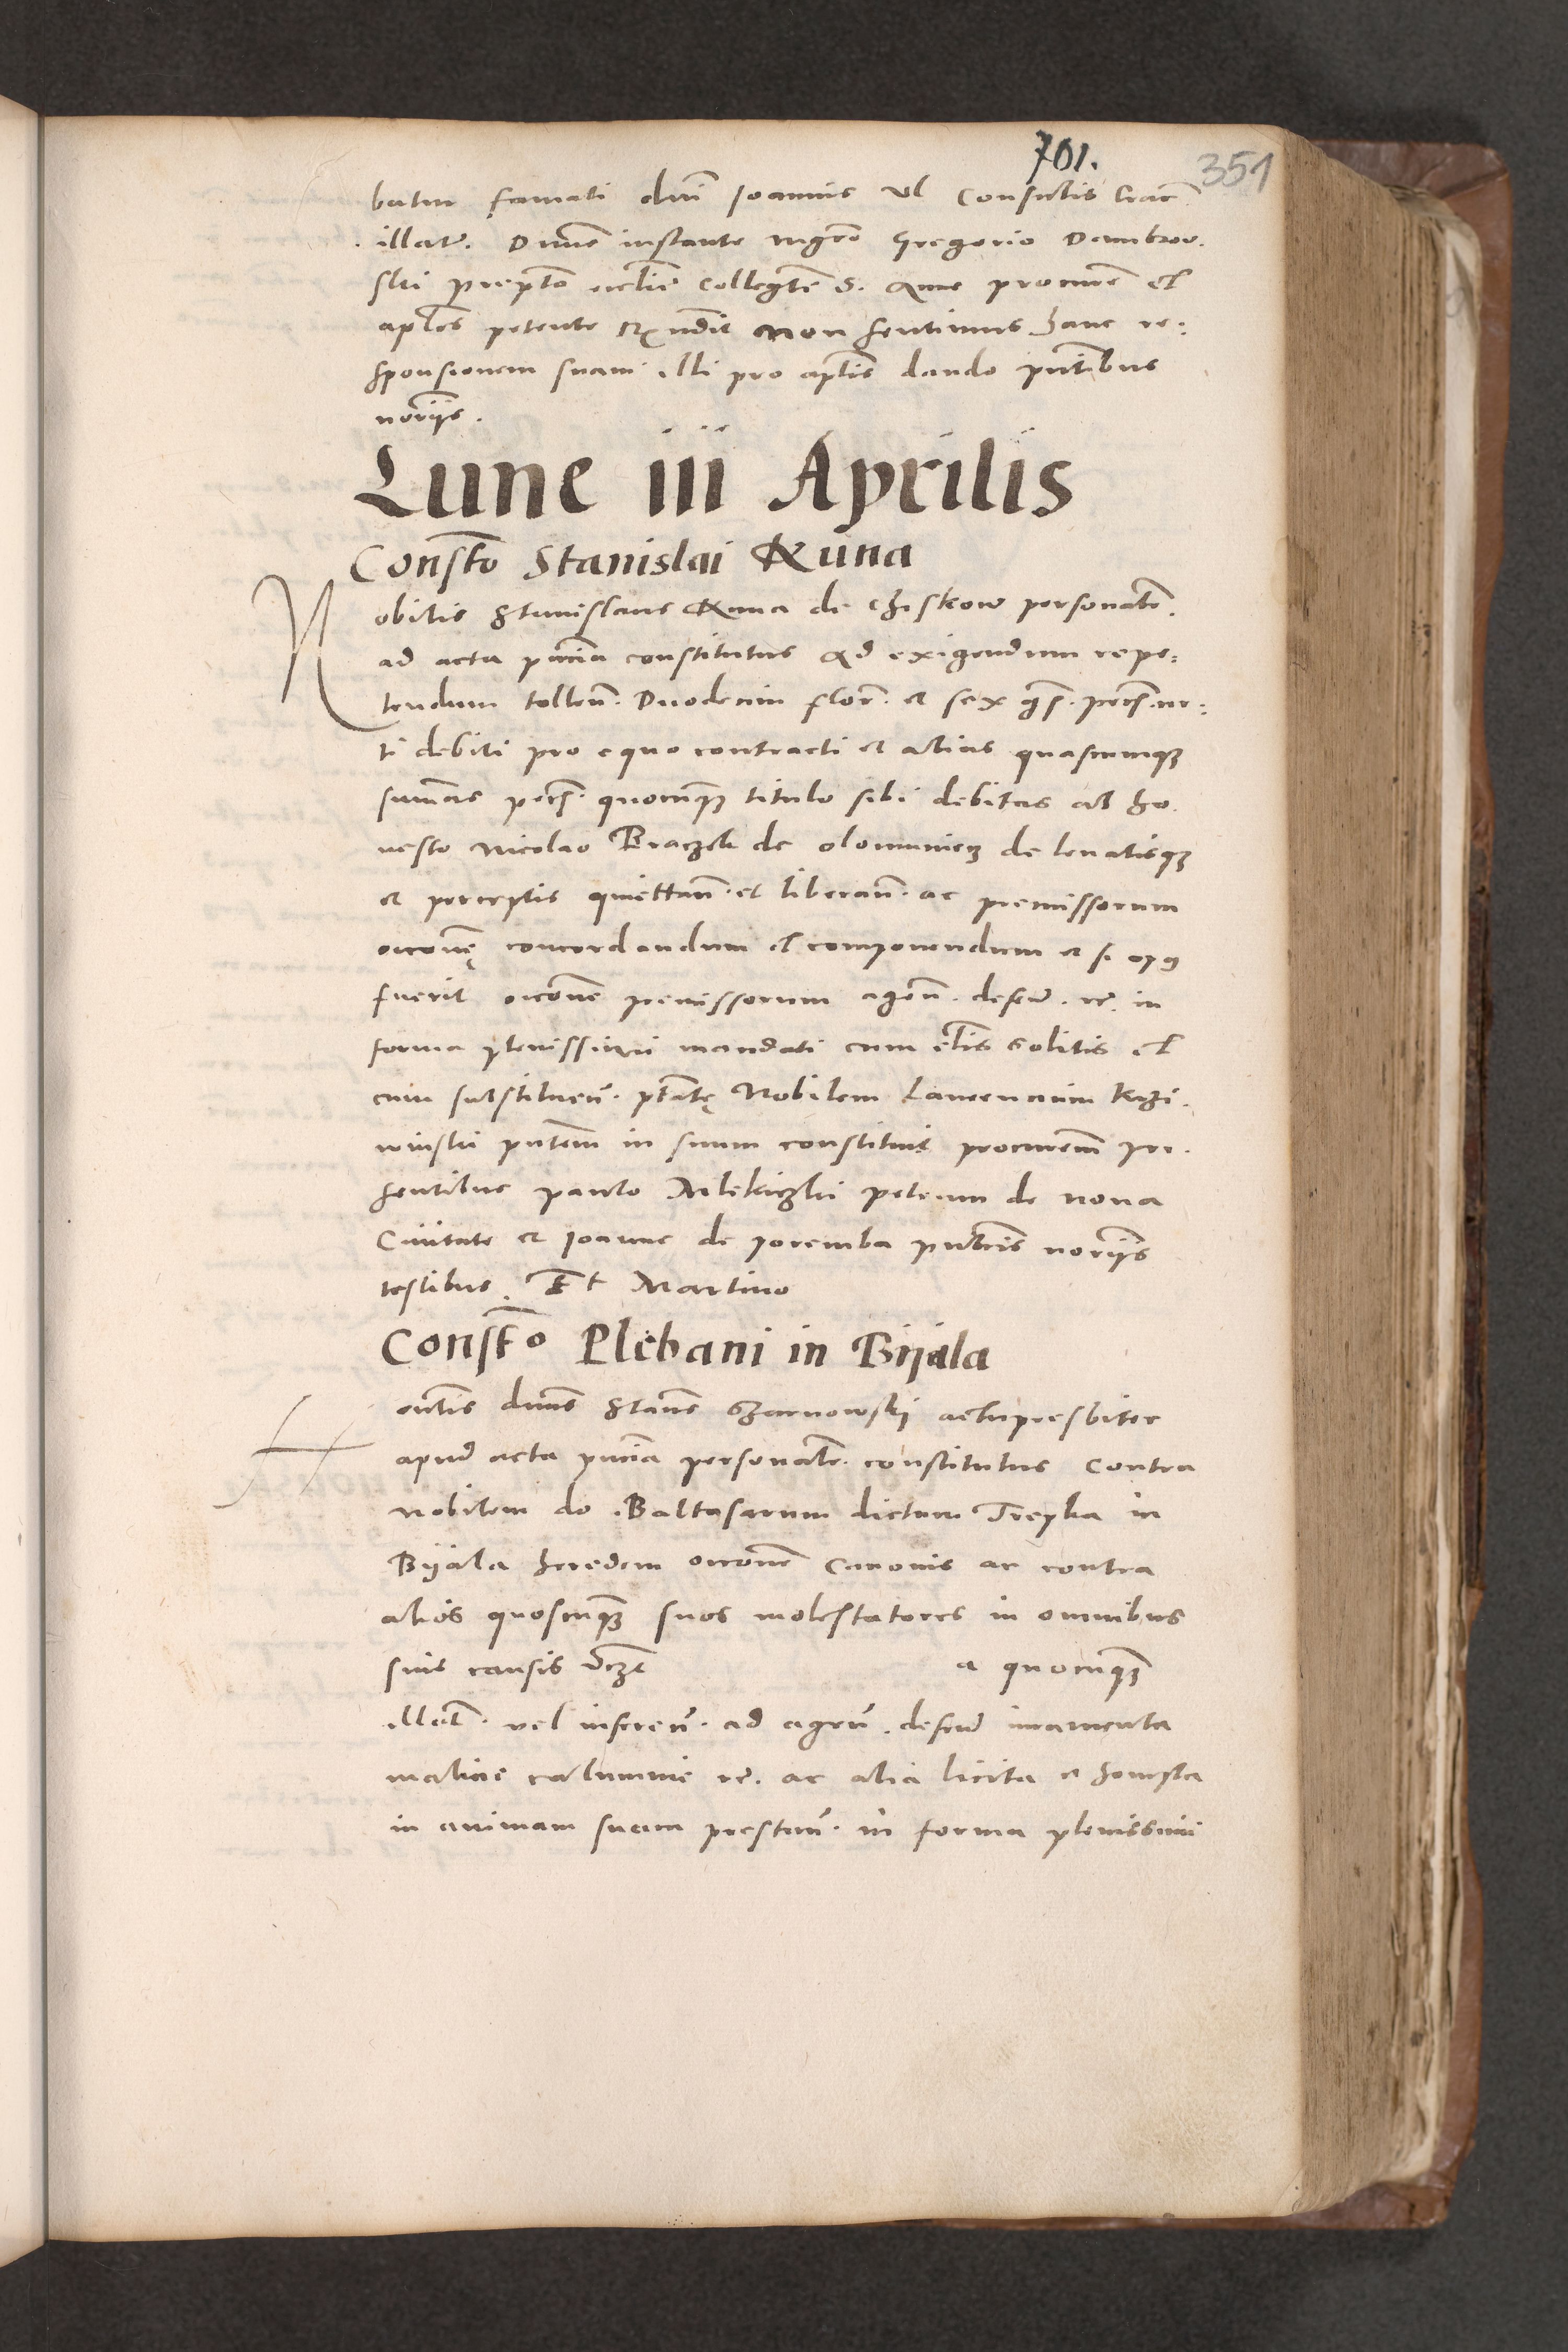 701.
351
batur famati dni Joannis Vl Consulis Crac
illatur. D. inste instante mgro Gregorio Dembrow.
ski prepto ecclie collegte S. Anne procure et
aplos petente Rndit non sentimus hanc re:
sponsionem suam illi pro aplis dando pntibus
noriis.
Lune iii Aprilis
Constto Stanislai Kuna
Nobilis Stanislaus Kuna de Chiskow personalr.
ad acta pncia constitutus Ad exigendum repe:
tendum tollen. Duodecim flor. et sex gs. pecs. cer:
ti debiti pro equo contracti et alias quascunqz
sumas pecs. quocunqz titulo sibi debitas ab ho.
nesto Nicolao Braczek de olomuniecz de leuatisqz
et perceptis quiettan. et liberan. ac premissorum
occone concordandum et componendum et si opus
fuerit occone premissorum agen. defen. rc. in
forma plenissimi mandati cum clis solitis et
cum substituen. ptate Nobilem Laurencium Krzi.
winski pntem in suum constituit procurem pre.
sentibus paulo Mlekiczki petrum de noua
Ciuitate et Joanne de poremba publicis noriis
testibus. Et Martino
Constto Plebani in Biiala
Hontis dnus Stanis Czarnowskj altipresbiter
apud acta pncia personalr. constitutus Contra
nobilem do. Baltasarum dictum Trepka in
Biiala heredem occone Canonis ac contra
alios quoscunqz suos molestatores in omnibus
suis causis a quocunqz
illat. vel inferen. ad agen. defen iuramenta
malicie calumnie rc. ac alia licita et honesta
in animam suam prestan. in forma plenissimi